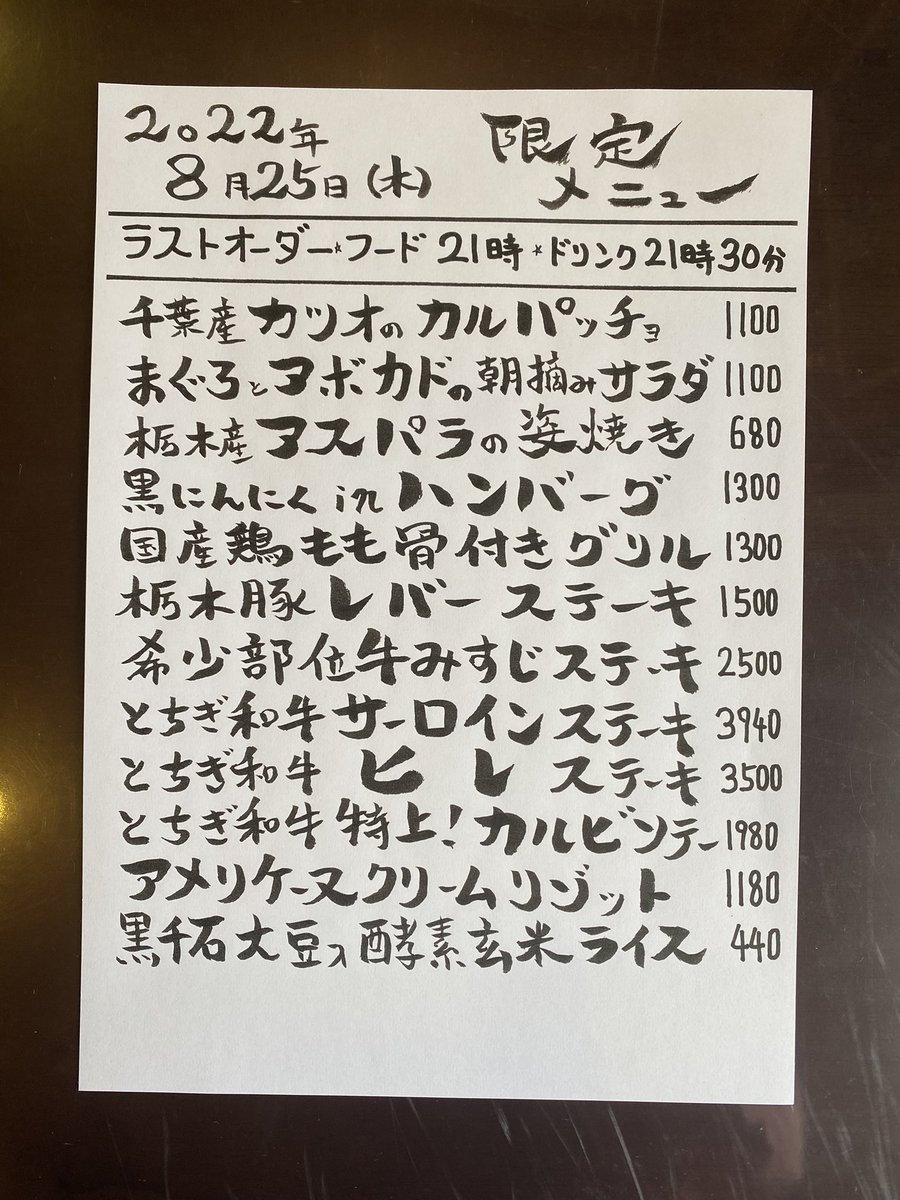 2022年
8月25日(木)
限定
メニュー
ラストオーダー*フード 21時 *ドリンク21時30分
千葉産カツオのカルパッチョ 1100
まぐろとアボカドの朝摘みサラダ 1100
栃木産アスパラの姿焼き 680
黒にんにくinハンバーグ 1300
国産鶏もも骨付きグリル 1300
栃木豚レバーステーキ 1500
希少部位牛みすじステーキ 2500
とちぎ和牛サーロインステーキ 3940
とちぎ和牛ヒレステーキ 3500
とちぎ和牛特上!カルビソテー 1980
アメリケーヌクリームリゾット 1180
黒千石大豆入酵素玄米ライス 440